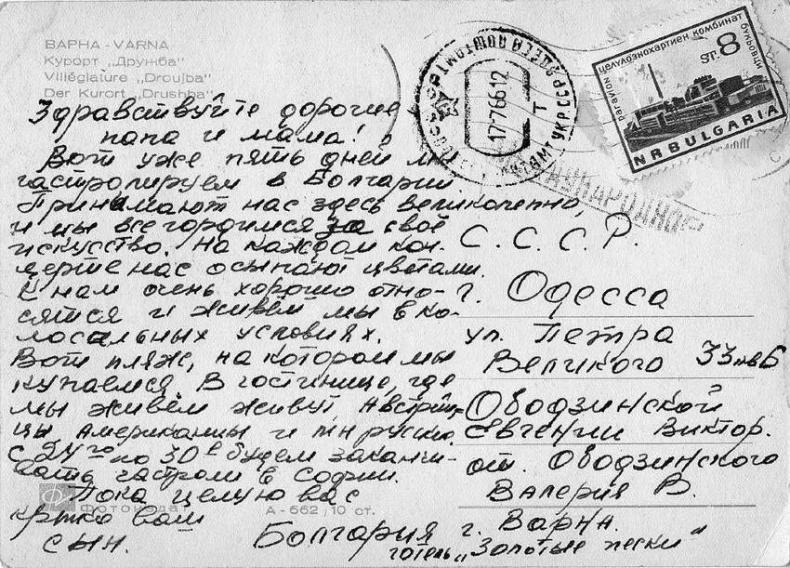 ВАРНА - VARNA
Курорт „Дружба"
Villégiature „Droujba"
Der Kurort „Drushba"
Здравствуйте дорогие
папа и мама!
Вот уже пять дней мы
гастролируем в Болгарии
Принимают нас здесь великолепно,
и мы все гордимся за своё
искусство. На каждом кон-
церте нас осыпают цветами.
К нам очень хорошо отно-
сятся и живём мы в ко-
лосальных условиях.
Вот пляж, на котором мы
купаемся. В гостинице, где
мы живём живут Австрий-
цы американцы и мн русских
с 24го по 30е будем заканчи-
вать гастроли в Софии.
Пока целую вас
крепко ваш
сын.
Фотоиздат
А - 662 ; 10 ст.
17-7 66 12
ОДЕССА ПОЧТАМТ УКР ССР
МЕЖДУНАРОДНОЕ
целулозно хартиен комбинат
ст. 8
NR BULGARIA
С. С. С. Р.
г. Одесса
ул. Петра
Великого 33 кв 6
Ободзинской
Евгении Виктор.
от. Ободзинского
Валерия В.
Болгария г. Варна.
готель „Золотые пески"